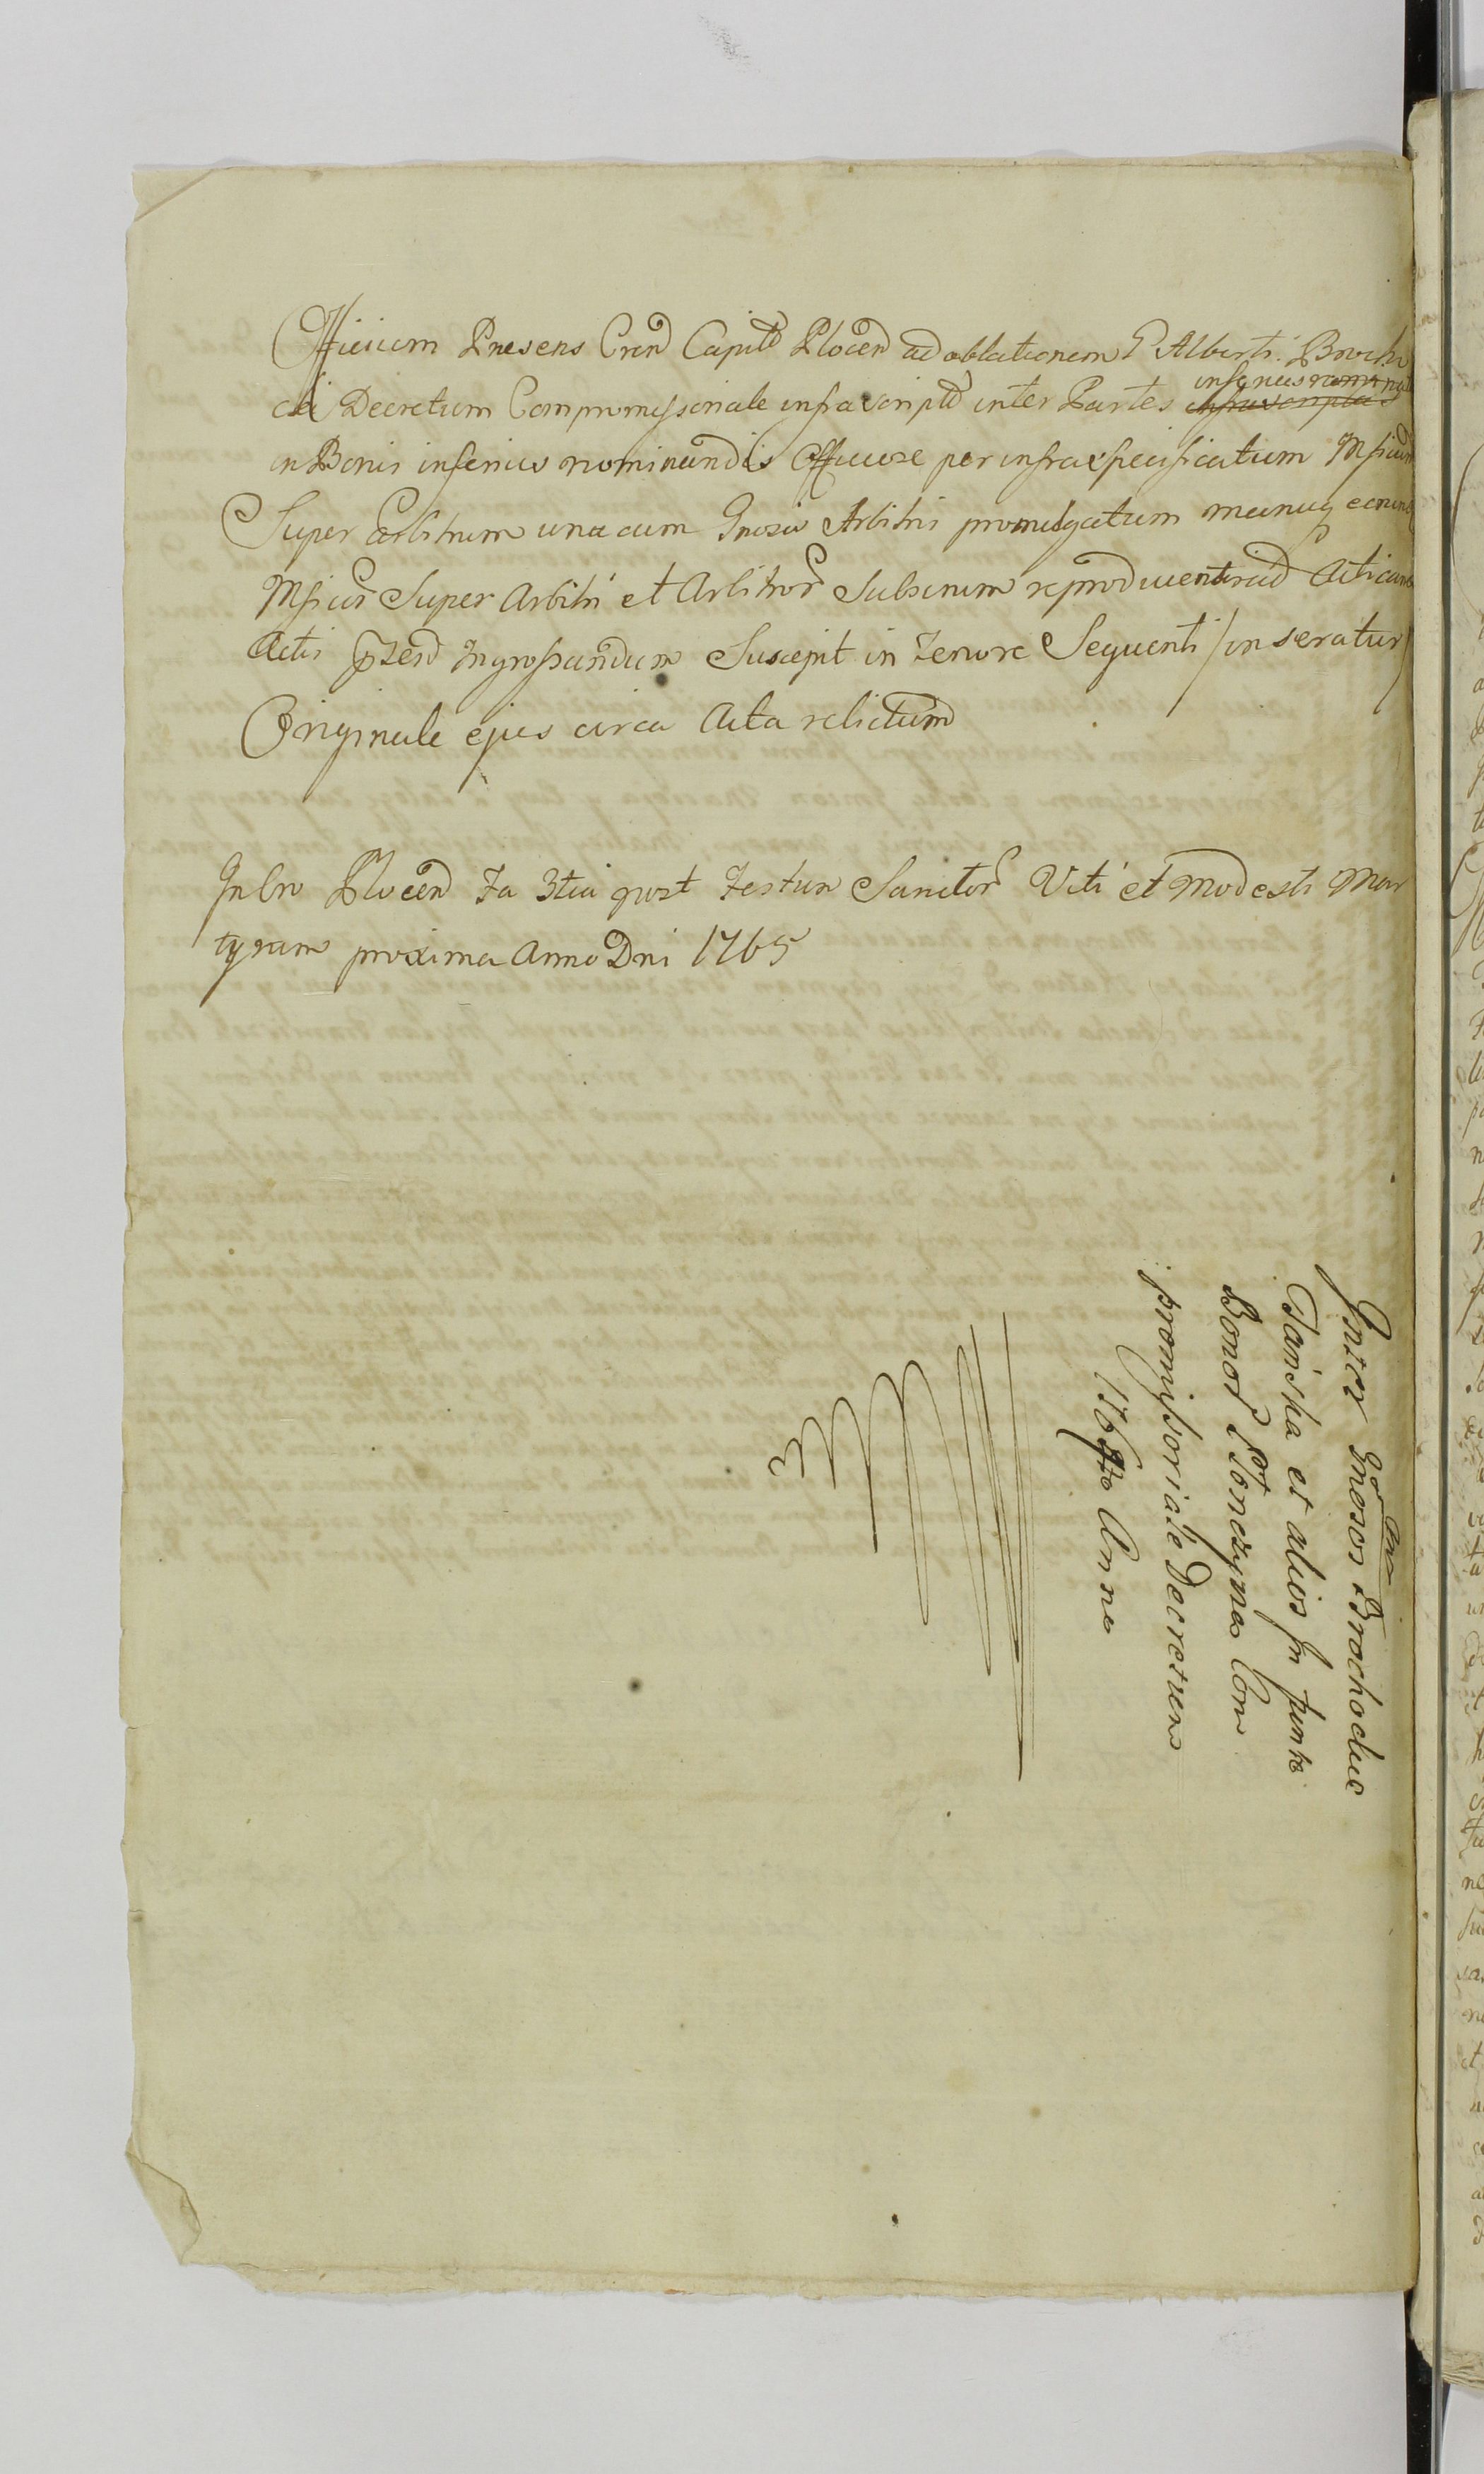 Officium Presens Cren Capitle Plocen ad oblationem G Alberti Brocho
cki Decretum Compromissoriale infrascriptu inter Partes infrascriptas inferius nomi
in Bonis inferius nominandis Officiose per infraspecificatum Mficum
Super Arbitrum una cum Gnosis Arbitris promulgatum manuq eorund
Mfici Super Arbitri et Arbitror Subscriptum reproducentis id Acticand
Actis suscepit ingrossandum Suscepit in Tenore Sequenti /inseratur/
Originale ejus circa Acta relictum
In Cro Plocen Fa 3tia post Festum Sanctor Viti et Modesti Mar
tyrum proxima Anno Dni 1765
Inter Gnosos Brochockie
Tańska et alios In puncto
Bonor Płonczyno Com
promissoriale Decretum
Anno